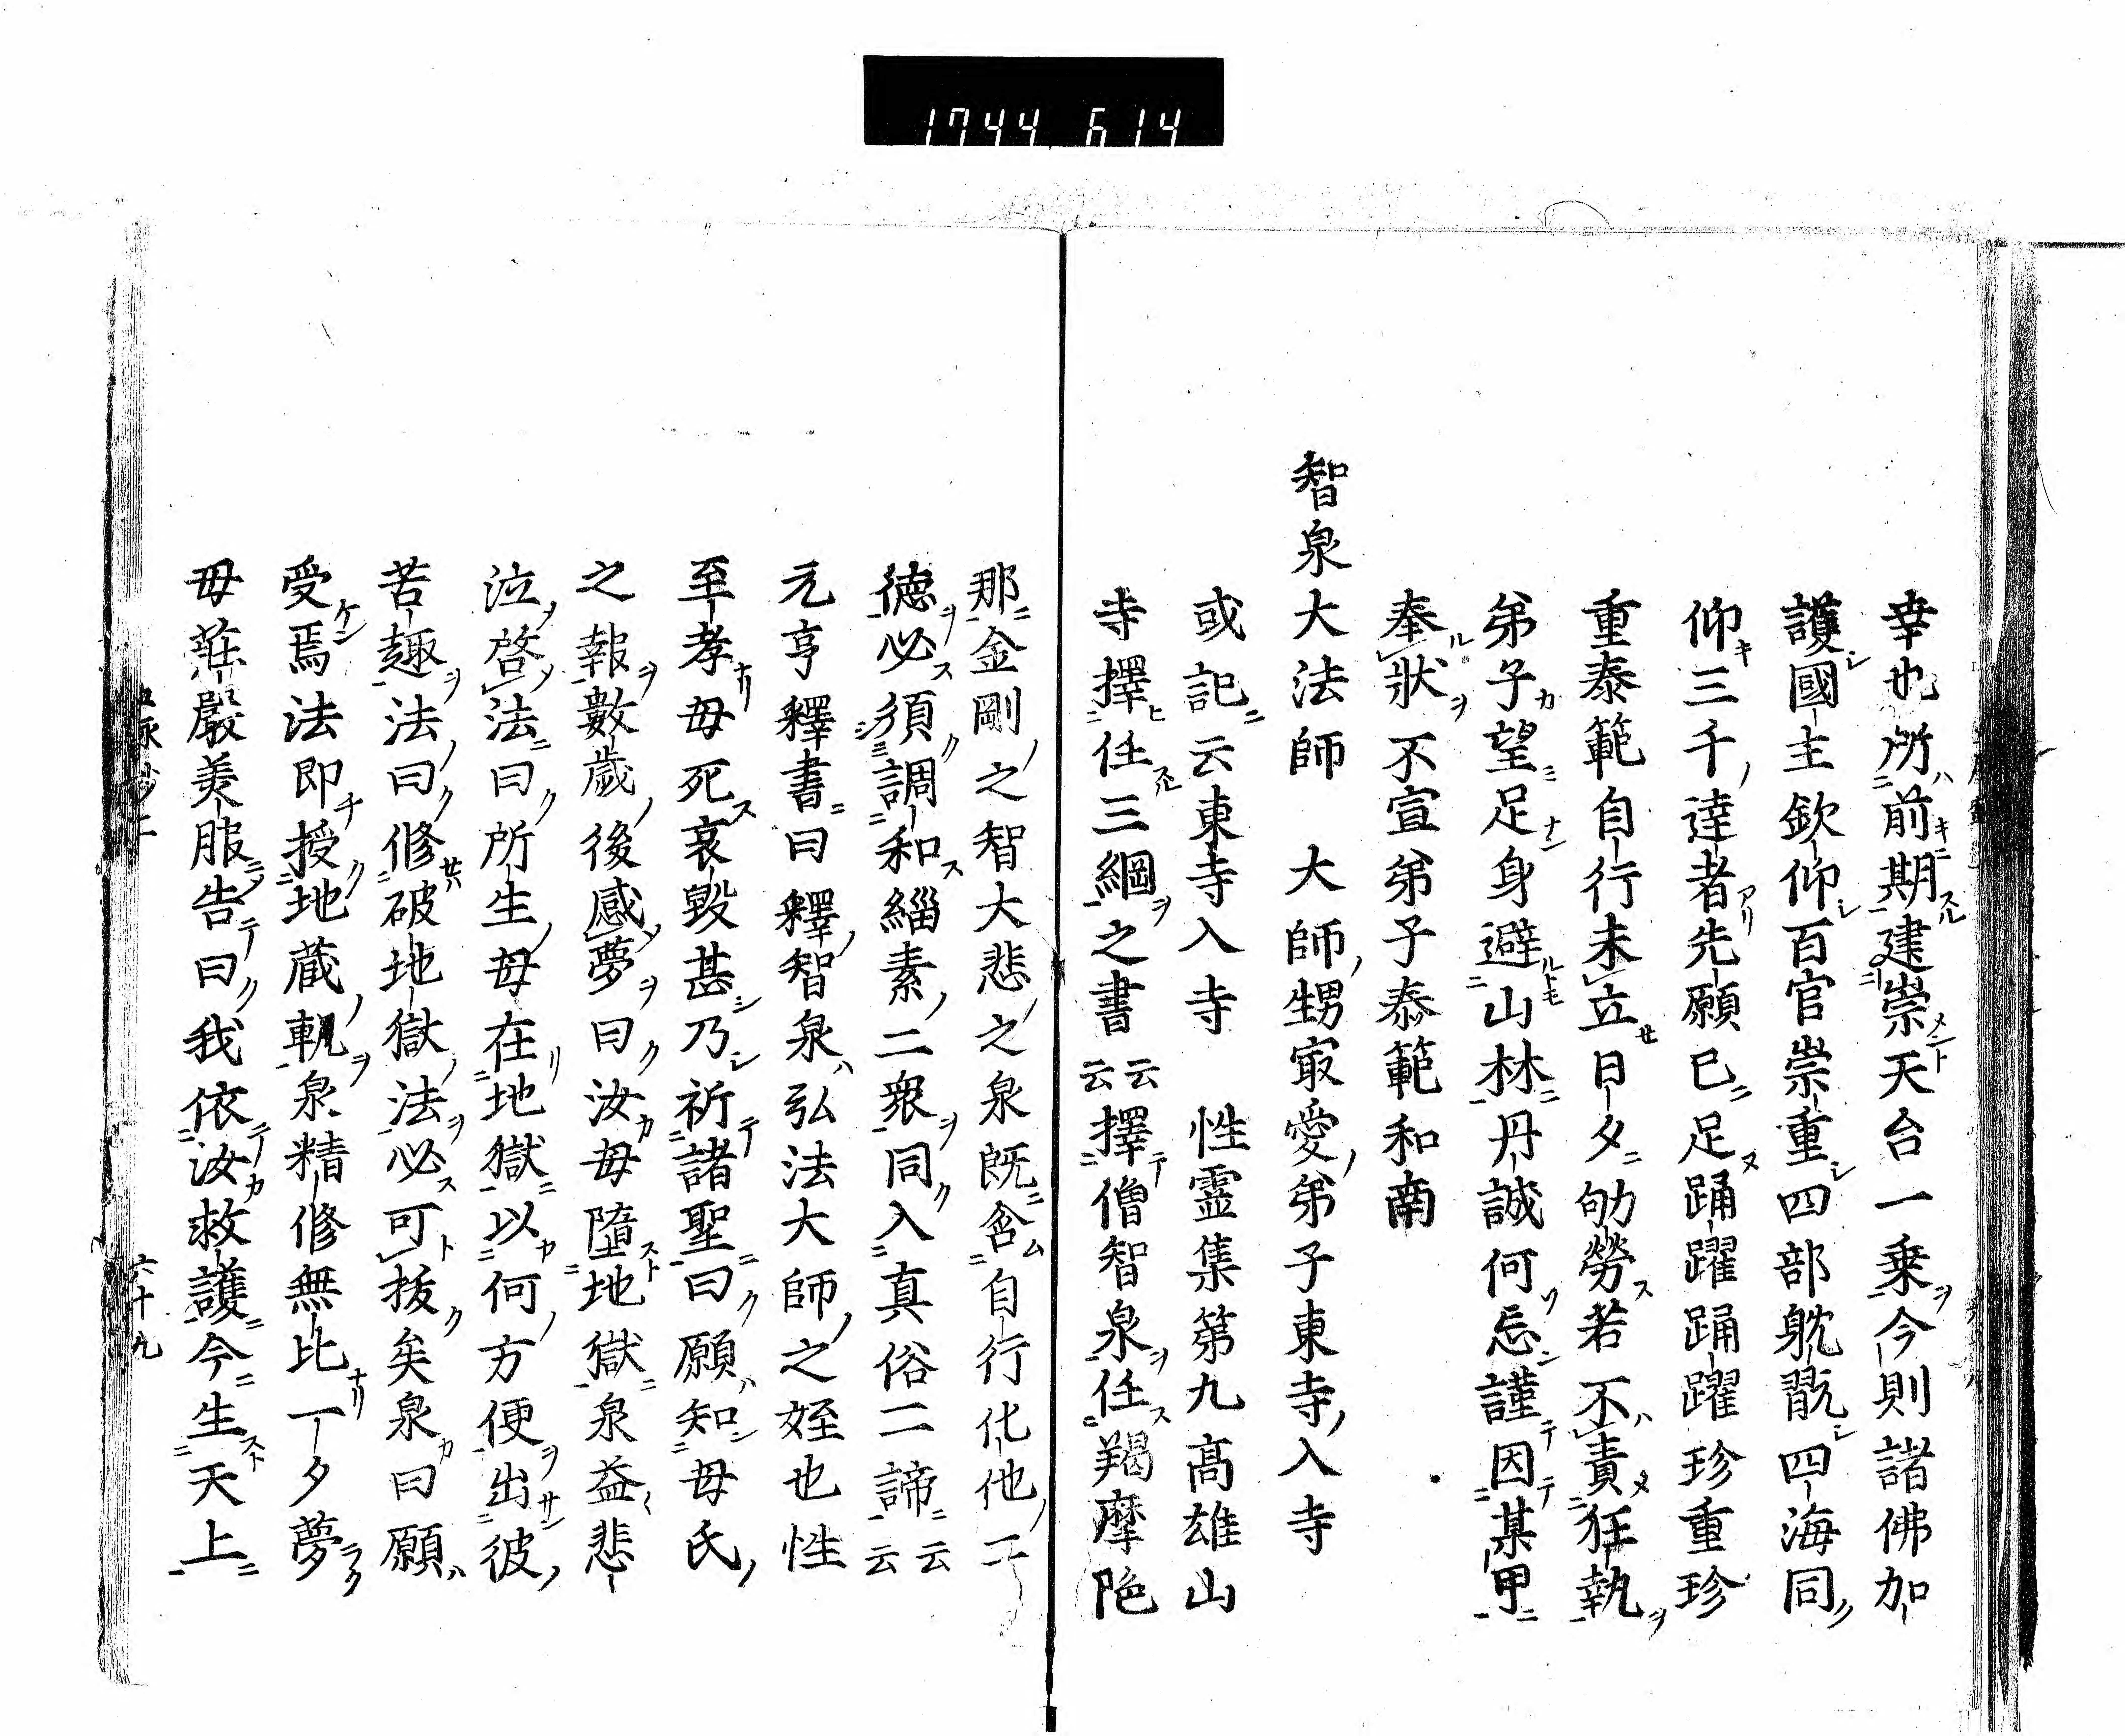 1744 614
幸也所前期建崇天台一乗今則諸佛加
護國主欽仰百官崇重四部躭翫四海同
仰三千達者先願已足踊躍踊躍珍重珍
重泰範自行未立日夕劬勞若不責狂執
弟子望足身避山林丹誠何忘謹因某甲
奉狀不宣弟子泰範和南
智泉大法師 大師甥㝡愛弟子東寺入寺
或記云東寺入寺 性霊集第九髙雄山
寺擇任三綱之書云云擇僧智泉任羯摩陁
那金剛之智大悲之泉既含自行化他
德必須調和緇素二衆同入真俗二諦云云
元亨釋書曰釋智泉弘法大師之姪也性
至孝母死哀毀甚乃祈諸聖曰願知母氏
之報數歲後感夢曰汝母墮地獄泉益悲
泣啓法曰所生母在地獄以何方便出彼
苦趣法曰修破地獄法必可拔矣泉曰願
受焉法即授地蔵軌泉精修無比一夕夢
母莊嚴美服告曰我依汝救護今生天上
六十九